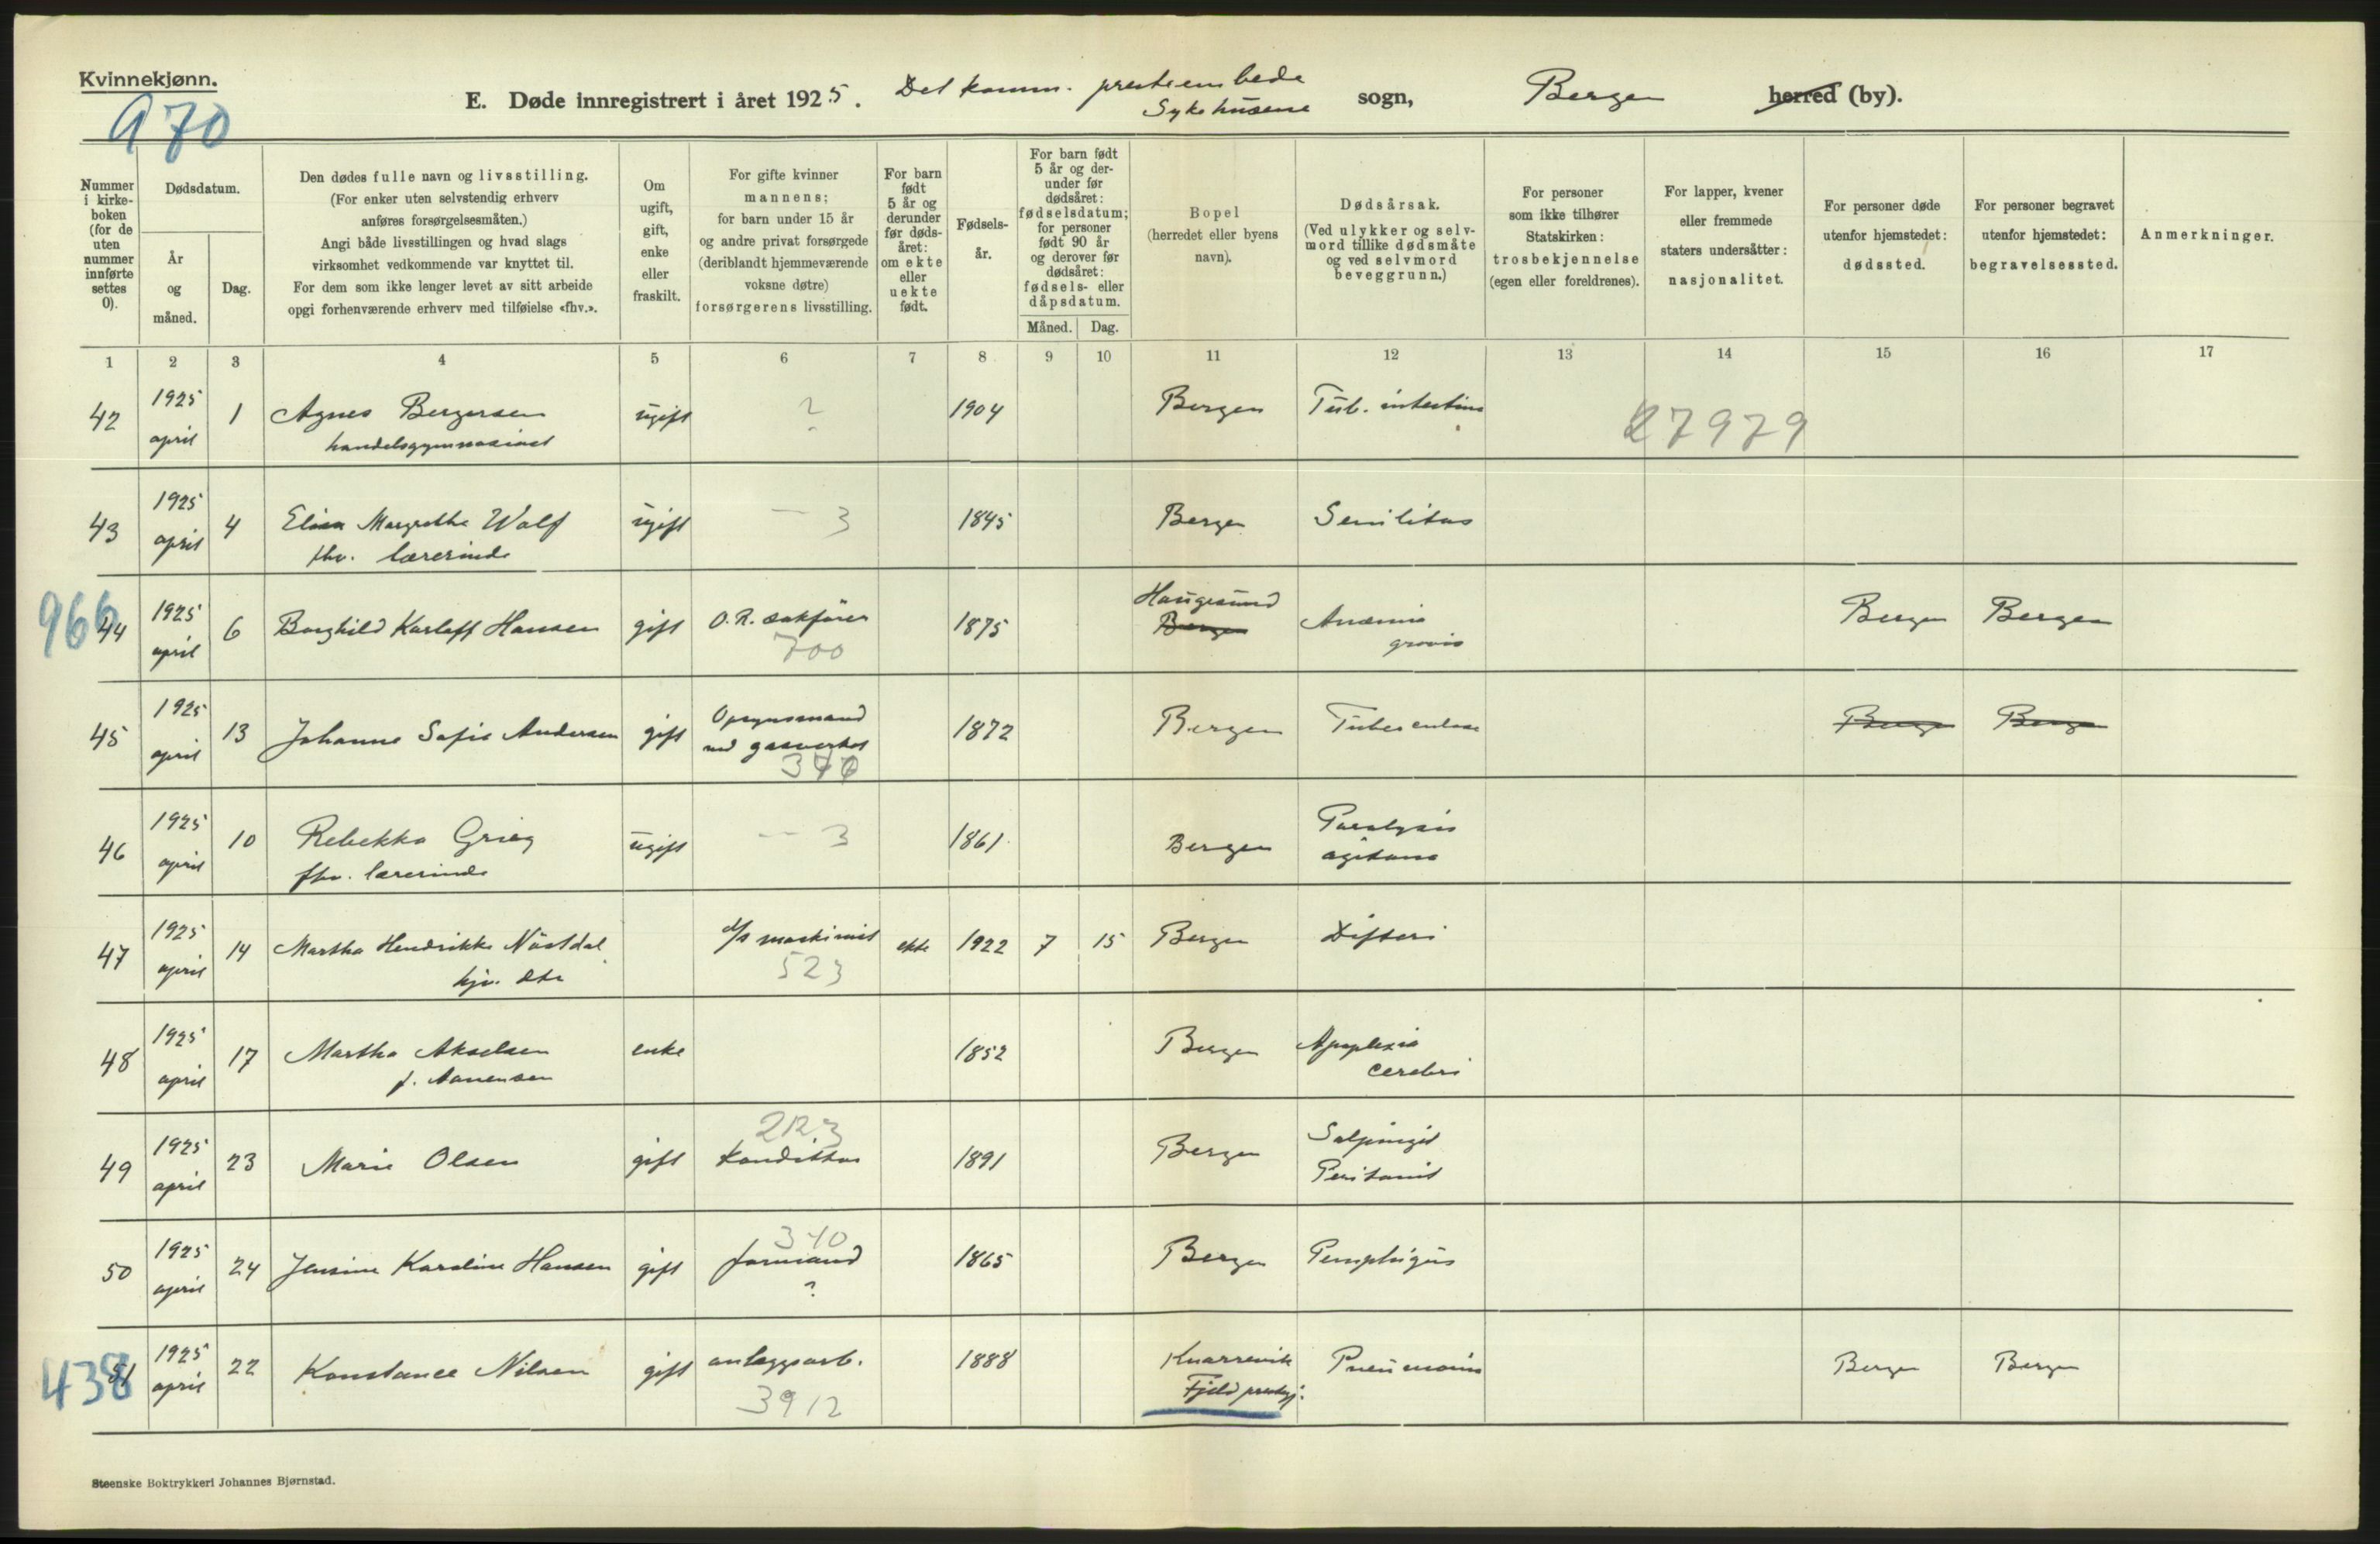 Kvinnekjønn.
970
E. Døde innregistrert i året 1925. Det komm. presteembede
Sykehusene sogn, Bergen herred (by).
Nummer i kirkeboken (for de uten nummer innførte settes 0).
Dødsdatum.
År og måned.
Dag.
Den dødes fulle navn og livsstilling.
(For enker uten selvstendig erhverv
anføres forsørgelsesmåten.)
Angi både livsstillingen og hvad slags
virksomhet vedkommende var knyttet til.
For dem som ikke lenger levet av sitt arbeide
opgi forhenværende erhverv med tilføielse «fhv.».
Om ugift, gift, enke eller fraskilt.
For gifte kvinner
mannens;
for barn under 15 år
og andre privat forsørgede
(deriblandt hjemmeværende
voksne døtre)
forsørgerens livsstilling.
For barn født 5 år og derunder før dødsåret: om ekte eller uekte født.
Fødselsår.
For barn født 5 år og derunder før dødsåret: fødselsdatum; for personer født 90 år og derover før dødsåret: fødsels- eller dåpsdatum.
Måned. Dag.
Bopel
(herredet eller byens
navn).
Dødsårsak.
(Ved ulykker og selvmord tillike dødsmåte og ved selvmord beveggrunn.)
For personer
som ikke tilhører
Statskirken:
trosbekjennelse
(egen eller foreldrenes).
For lapper, kvener
eller fremmede
staters undersåtter:
nasjonalitet.
For personer døde
utenfor hjemstedet:
dødssted.
For personer begravet
utenfor hjemstedet:
begravelsessted.
Anmerkninger.
1 2 3 4 5 6 7 8 9 10 11 12 13 14 15 16 17
42 1925 april 1 Agnes Bergersen ugift ? 1904 Bergen Tub. intestina 27979
handelsgymnasiast
43 1925 april 4 Elisa Margrethe Wolf ugift — 3 1845 Bergen Senilitas
fhv. lærerinde
966
44 1925 april 6 Borghild Karloff Hansen gift O.R. sakfører 700 1875 Haugesund Bergen Anæmia gravis Bergen Bergen
45 1925 april 13 Johanne Sofie Andersen gift Opsynsmand ved gasverket 1872 Bergen Tuberculose Bergen Bergen
46 1925 april 10 Rebekka Grieg ugift — 3 1861 Bergen Paralysis agitans
fhv. lærerinde
47 1925 april 14 Martha Hendrikke Nöstdal d/s maskinist 523 ekte 1922 7 15 Bergen Difteri
hjv. dtr
48 1925 april 17 Martha Akselsen enke 1852 Bergen Apoplexia cerebri
f. Aanensen
49 1925 april 23 Marie Olsen gift Konditor 1891 Bergen Salpingit Peritonit
50 1925 april 24 Jensine Karoline Hansen gift 340 formand ? 1865 Bergen Pemphigus
438
51 1925 april 22 Konstance Nilsen gift anlæggsarb. 3912 1888 Knarrevik Fjeld prestgj. Pneumonia Bergen Bergen
Steenske Boktrykkeri Johannes Bjørnstad.